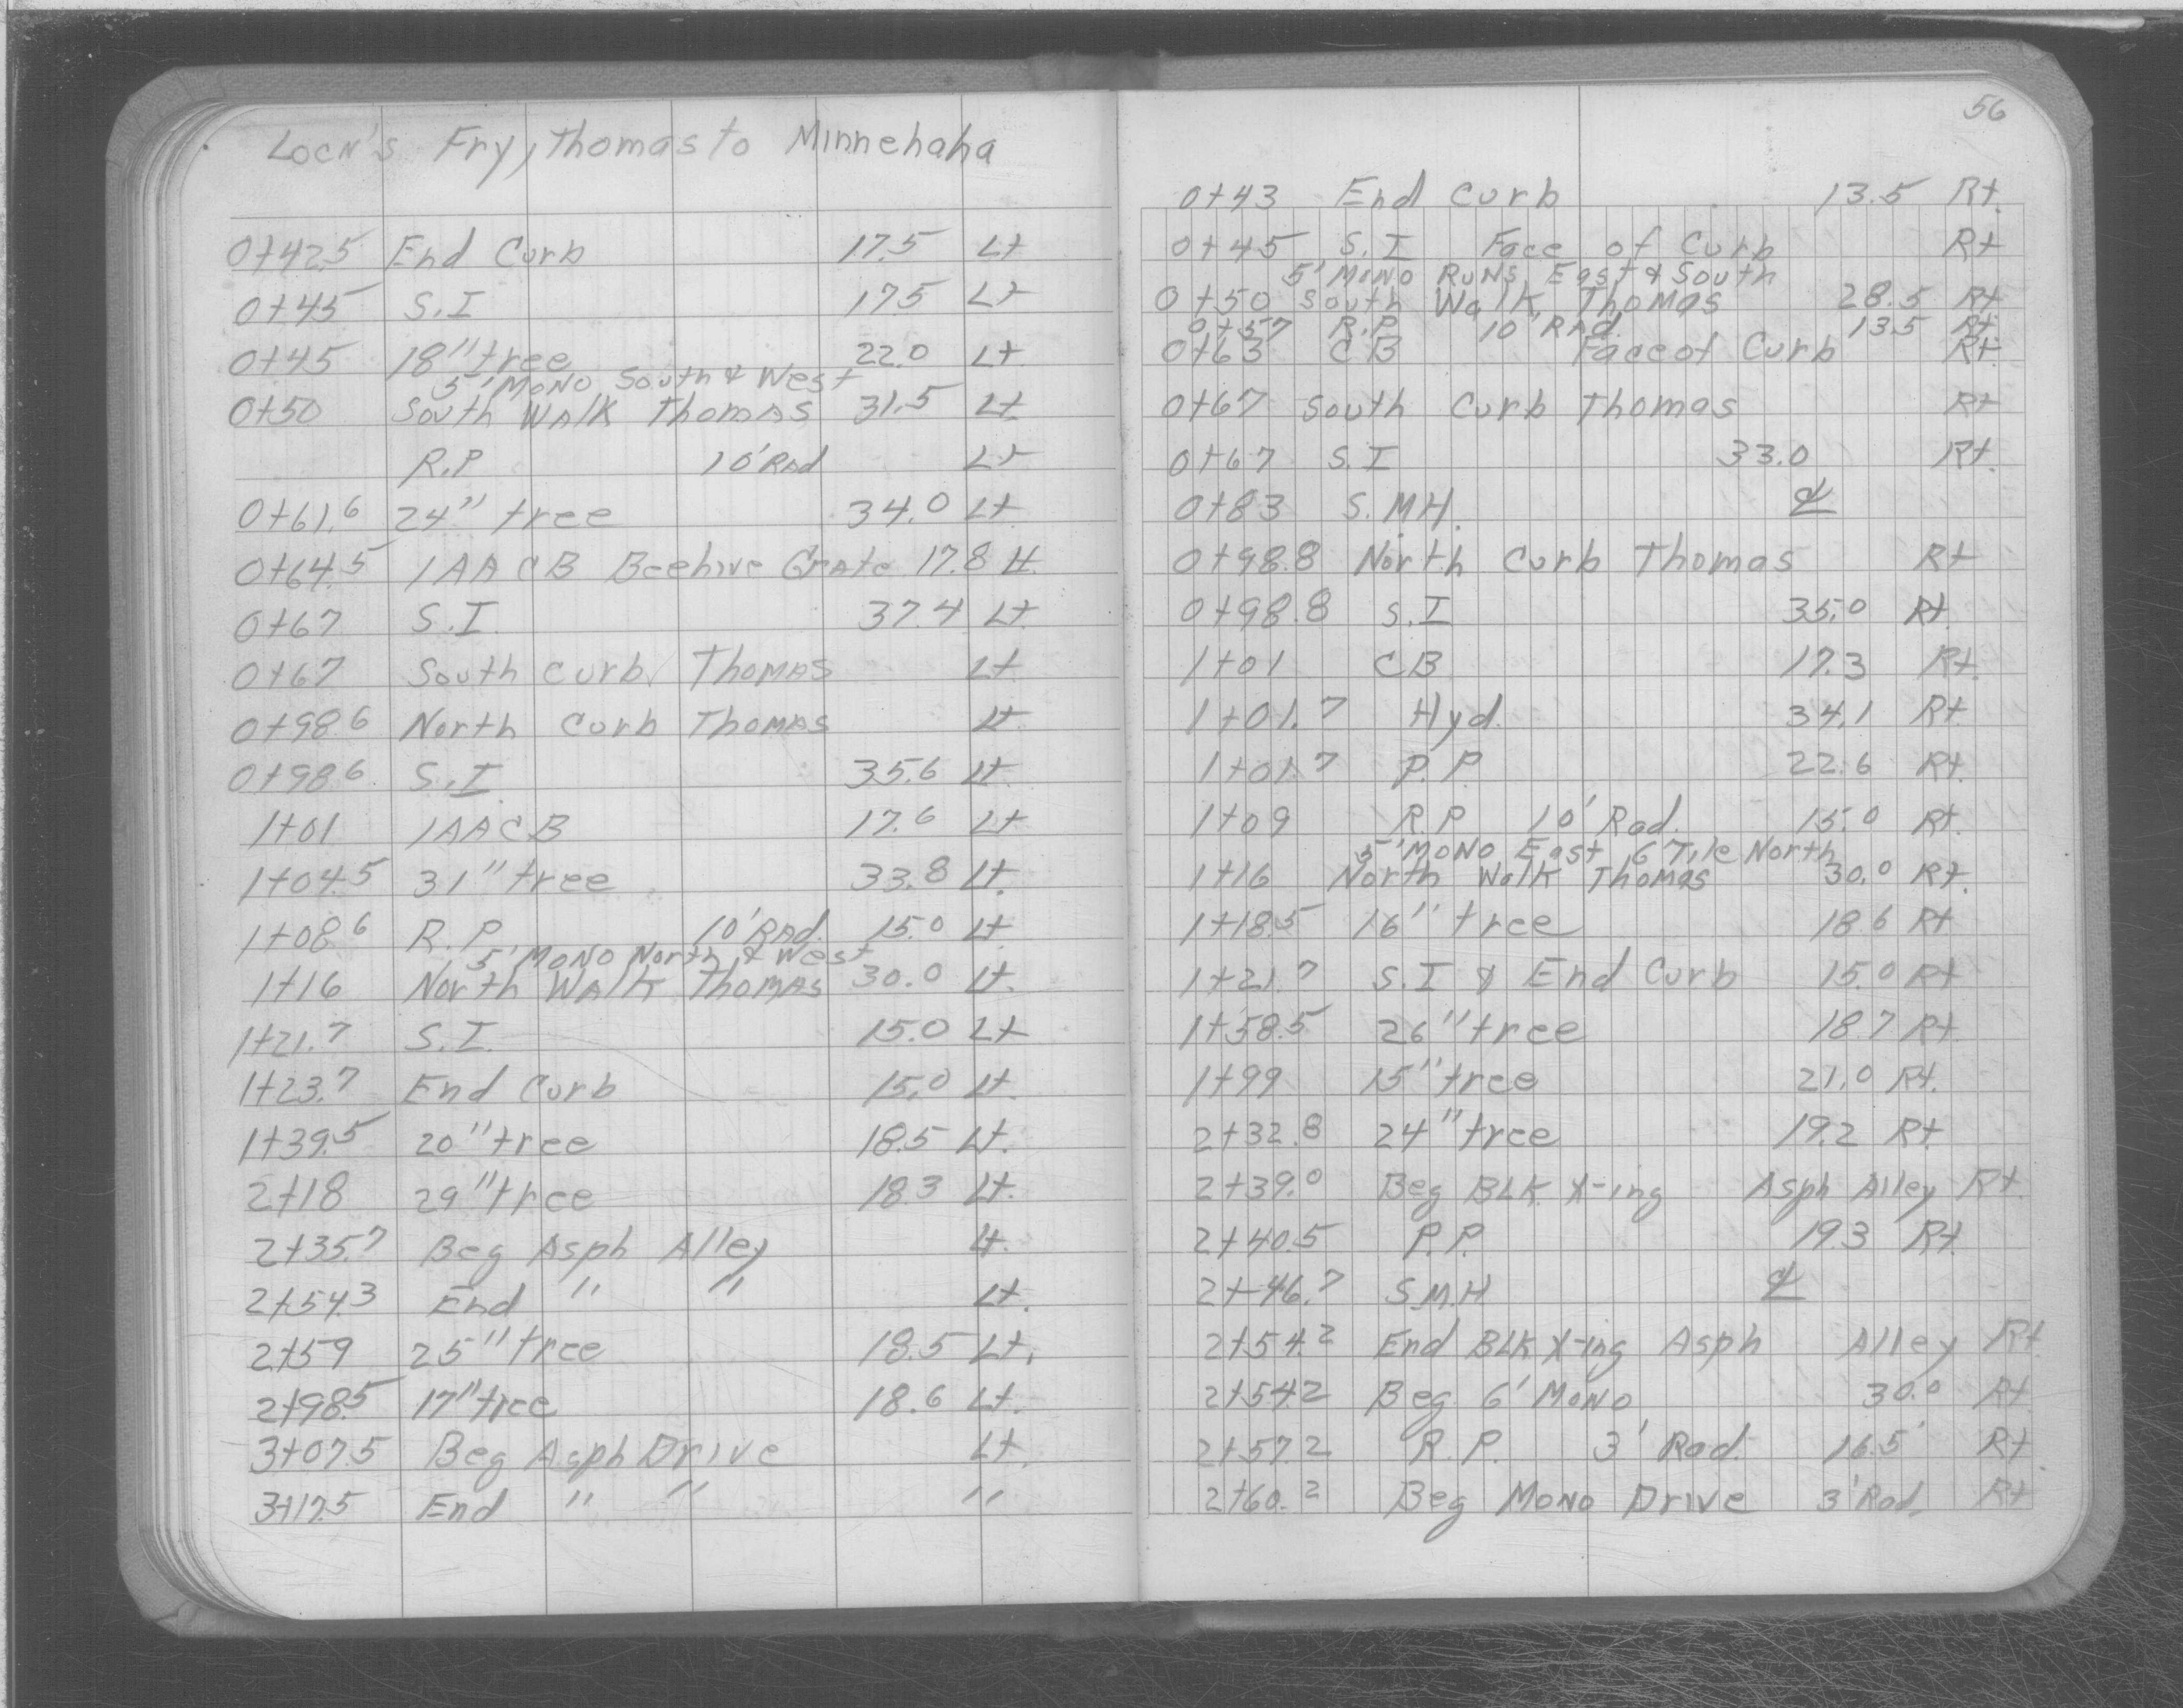 Locn's Fry, Thomas to Minnehaha
0+42.5 End Curb 17.5 Lt
0+45 S.I 17.5 Lt
0+45 18" tree 22.0 Lt
5' Mono South & West
0+50 South Walk Thomas 31.5 Lt
R.P 10' Rad Lt
0+61.6 24" tree 34.0 Lt
0+64.5 1AA CB Beehive Grate 17.8 Lt.
0+67 S.I. 37.4 Lt.
0+67 South Curb Thomas Lt
0+98.6 North Curb Thomas Lt
0+98.6 S.I. 35.6 Lt
1+01 1AA CB 17.6 Lt
1+04.5 31" tree 33.8 Lt.
1+08.6 R.P 10' Rad. 15.0 Lt
5' Mono North & West
1+16 North Walk Thomas 30.0 Lt.
1+21.7 S.I. 15.0 Lt
1+23.7 End Curb 15.0 Lt.
1+39.5 20" tree 18.5 Lt.
2+18 29" tree 18.3 Lt.
2+35.7 Beg Asph Alley Lt.
2+54.3 End " " Lt.
2+59 25" tree 18.5 Lt.
2+98.5 17" tree 18.6 Lt.
3+07.5 Beg Asph Drive Lt.
3+17.5 End " " "
56
0+43 End Curb 13.5 Rt.
0+45 S.I Face of Curb Rt
5' Mono Runs East & South
0+50 South Walk Thomas 28.5 Rt
0+57 R.P. 10' Rad. 13.5 Rt.
0+63 CB Face of Curb Rt.
0+67 South Curb Thomas Rt
0+67 S.I 33.0 Rt.
0+83 S.MH. ℄
0+98.8 North Curb Thomas Rt
0+98.8 S.I 35.0 Rt.
1+01 CB 17.3 Rt.
1+01.7 Hyd. 34.1 Rt
1+01.7 P.P. 22.6 Rt.
1+09 R.P 10' Rad. 15.0 Rt.
5' Mono East 6 Tile North
1+16 North Walk Thomas 30.0 Rt.
1+18.5 16" tree 18.6 Rt
1+21.7 S.I & End Curb 15.0 Rt
1+58.5 26" tree 18.7 Rt.
1+99 15" tree 21.0 Rt.
2+32.8 24" tree 19.2 Rt.
2+39.0 Beg BLK X-ing Asph Alley Rt.
2+40.5 P.P. 19.3 Rt.
2+46.7 S.M.H ℄
2+54.2 End BLK X-ing Asph Alley Rt.
2+54.2 Beg 6' Mono 30.0 Rt
2+57.2 R.P. 3' Rad. 16.5 Rt.
2+60.2 Beg Mono Drive 3' Rad. Rt